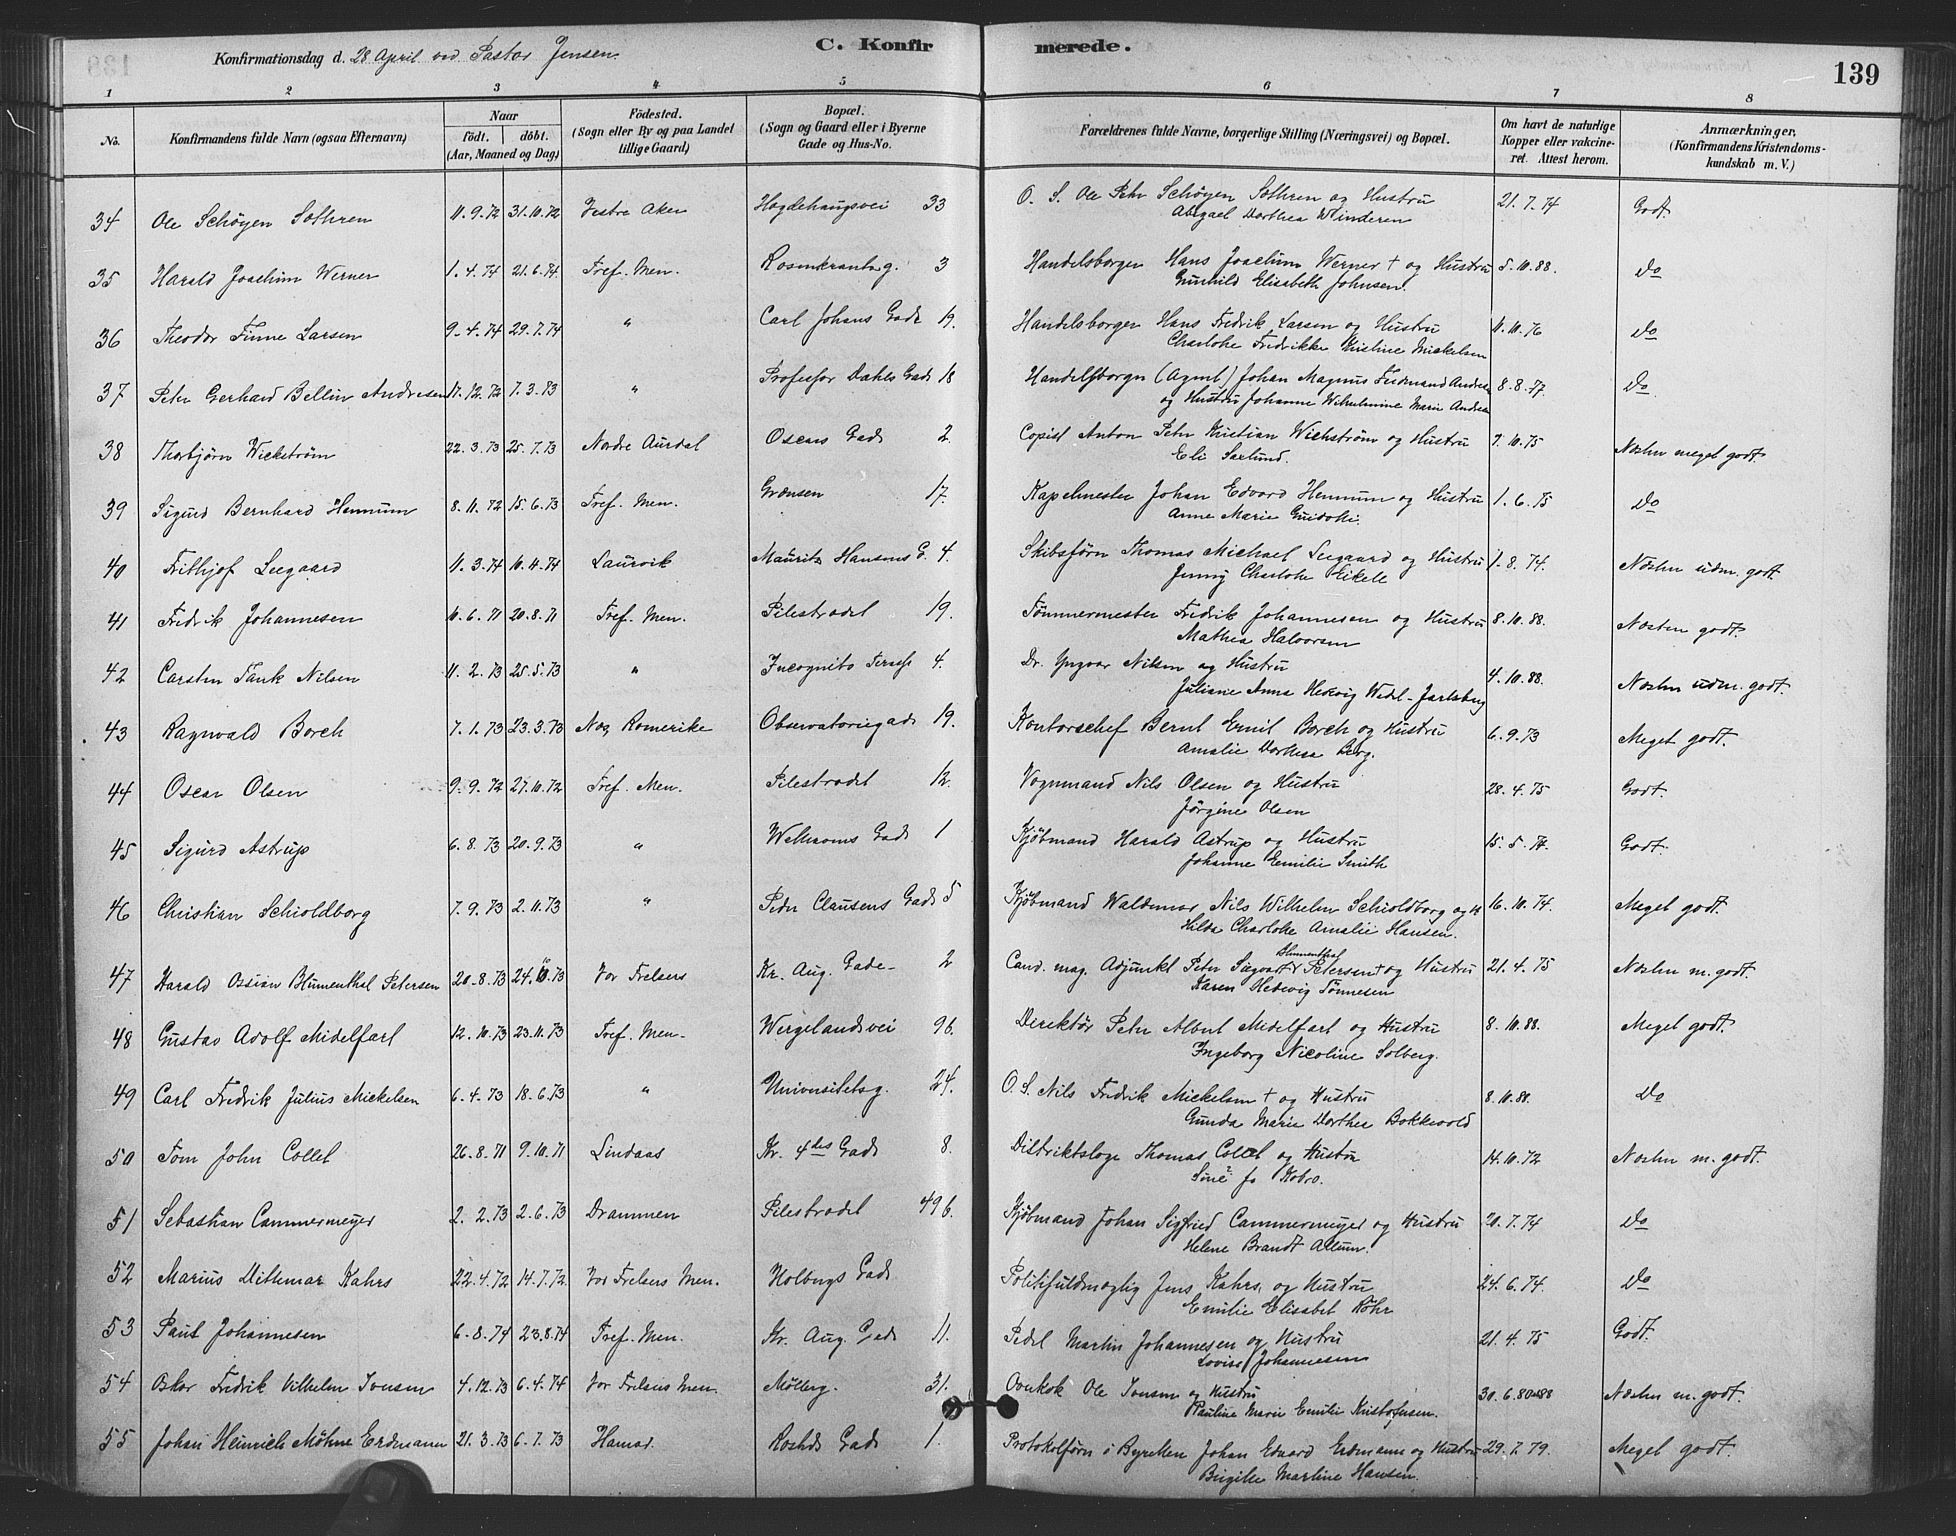 Konfirmationsdag d. 28 April ved Pastor Jensen. C. Konfirmerede. 139
1 2 3 4 5 6 7 8
No. Konfirmandens fulde Navn (ogsaa Efternavn) Naar født. døbt. (Aar, Maaned og Dag) Födested. (Sogn eller By og paa Landet tillige Gaard) Bopæl. (Sogn og Gaard eller i Byerne Gade og Hus-No. Forældrenes fulde Navne, borgerlige Stilling (Næringsvei) og Bopæl. Om havt de naturlige Kopper eller vakcineret. Attest herom. Anmærkninger, (Konfirmandens Kristendomskundskab m. V.)
34 Ole Schøyen Sothren 11.9.72 31.10.72 Vestre Aker Hægdehaugsvei 33 O. S. Ole Petr Schøyen Sothren og Hustru 21.7.74 Godt.
Abigael Dorthea Winderen
35 Harald Joachim Werner 1.4.74 21.6.74 Tref. Men. Rosenkrantzg. 3 Handelsborger Hans Joachim Werner † og Hustru 5.10.88. Do
Gunhild Elisabeth Johnsen.
36 Theodor Finne Larsen 9-4.74 29.7.74 " Carl Johans Gade 19. Handelsborger Hans Fredrik Larsen og Hustru 11.10.76 Do
Charlotte Fredrikke Kristine Mickelsen
37 Petr Gerhard Bellin Andresen 17.12.72 7.3.73 " Professor Dahls Gade 18 Handelsborger (Agent) Johan Magnus Ferdinand Andresen 8.8.77. Do
og Hustru Johanne Wilhelmine Marie Andresen
38 Thorbjørn Wickstrøm 22.3.73 25.7.73 Nordre Aurdal Oscars Gade 2. Copist Anton Petr Kristian Wichstrøm og Hustru 7.10.75 Næsten meget godt.
Eli Saxlund.
39 Sigurd Bernhard Hennum 8.11.72 15.6.73 Tref. Men. Grænsen 17. Kapelmester Johan Edvard Hennum og Hustru 1.6.75 Do
Anne Marie Guidotti.
40 Frithjof Seegaard 11.3.74 10.4.74 Laurvik Mauritz Hansens G. 4. Skibsfører Thomas Michael Seegaard og Hustru 1.8.74. Næsten udm. godt
Jenny Charlotte Eikele
41 Fredrik Johannesen 10.6.71 20.8.71 Tref. Men. Pilestrædet 19. Tømmermester Fredrik Johannesen og Hustru 8.10.88. Næsten godt.
Mathea Halvorsen
42 Carsten Tank Nilsen 11.2.73 25.5.73 " Incognito Terasse 4. Dr. Yngvar Nilsen og Hustru 4.10.88. Næsten udm. godt.
Juliane Anna Hedevig Wedel-Jarlsberg
43 Ragnvald Borch 7.1.73 23.3.73 Næs, Romerike Observatoriegade 19. Kontorschef Bernt Emil Borch og Hustru 6.9.73 Meget godt.
Amalie Dorthea Berg.
44 Oscar Olsen 9.9.72 27.10.72 Tref. Men. Pilestrædet 12. Vognmand Nils Olsen og Hustru 28.4.75 Godt.
Jørgine Olsen
45 Sigurd Astrup 6.8.73 20.9.73 " Welhavens Gade 1 Kjøbmand Harald Astrup og Hustru 15.5.74. Godt.
Johanne Emilie Smith
46 Christian Schioldborg 7.9.73 2.11.73 " Peder Clausens Gade 5 Kjøbmand Waldemar Nils Wilhelm Schioldborg og H. 16.10.74. Meget godt.
Hilda Charlotte Amalie Hansen.
47 Harald Ossian Blumenthal Petersen 20.8.73 24.10.73 Vor Frelsers Kr. Aug. Gade- 2 Cand. mag. Adjunkt Peter Sigvart Blumenthal Petersen † og Hustru 21.4.75 Næsten m. godt
Karen Hedevig Tønnesen
48 Gustav Adolf Midelfart 12.10.73 23.11.73 Tref. Men- Wergelandsvei 9b. Direktør Petr Albert Midelfart og Hustru 8.10.88. Meget godt.
Ingeborg Nicoline Solberg.
49 Carl Fredrik Julius Mickelsen 6.4.73 18.6.73 " Universitetsg. 24. O. S. Nils Fredrik Mickelsen † og Hustru 8.10.88. Do
Gunda Marie Dorthea Bokkevold
50 Tom John Collet 26.8.71 9.10.71 Lindaas Kr. 4des Gade 8. Distriktslæge Thomas Collet og Hustru 14.10.72 Næsten m. godt.
Sine f. Kobro.
51 Sebastian Cammermeyer 2.2.73 2.6.73 Drammen Pilestrædet 49b. Kjøbmand Johan Sigfried Cammermeyer og Hustru 20.7.74 Do
Helene Brandt Allum.
52 Marius Dithmar Kahrs 22.4.72 14.7.72 Vor Frelsers Men. Holbergs Gade Politifuldmægtig Jens Kahrs og Hustru 24.6.74. Do
Emilie Elisabet Röhr
53 Paul Johannesen 6-8.74 23.8.74 Tref. Men. Kr. Aug. Gade 11. Pedel Martin Johannesen og Hustru 21.4.75 Godt.
Lovise Johannesen
54 Oskar Fredrik Vilhelm Ivensen 4.12.73 6.4.74 Vor Frelsers Men. Møllerg. 31. Ovnkok Ole Ivensen og Hustru 30.6.80 Næsten m. godt.
Pauline Marie Emilie Kristofersen.
55 Johan Heinrich Møhne Erdmann 21.3.73 6.7.73 Hamar Roshds Gade 1. Protokolfører i Byretten Johan Edvard Erdmann og Hustru 29.7.79. Meget godt.
Birgitte Martine Hansen.